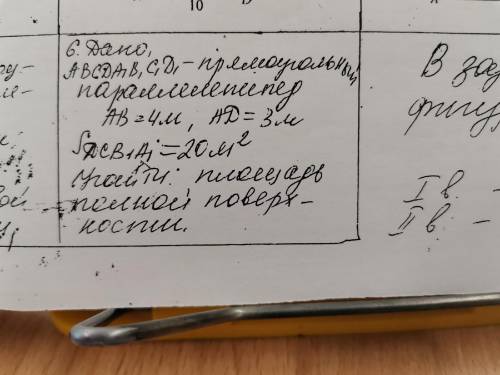 10
6. Дано,
ABCDA₁B₁C₁D₁ - прямоугольный
параллелепипед
AB = 4м, AD = 3м
S DCB₁A₁ = 20м²
Найти: площадь
полной поверх-
ности.
В зад
фигу
I в. -
II в. -